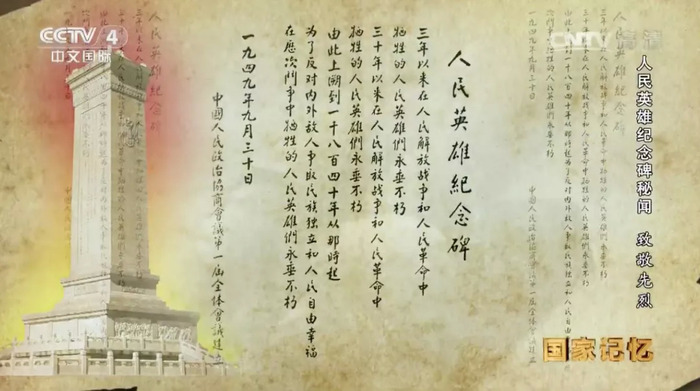 CCTV 4
中文国际
CNTV 高清
人民英雄纪念碑秘闻 致敬先烈
人民英雄紀念碑
三年以来在人民解放战争和人民革命中
牺牲的人民英雄們永垂不朽
三十年以来在人民解放战争和人民革命中
牺牲的人民英雄們永垂不朽
由此上溯到一千八百四十年从那時起
为了反对内外敌人争取民族独立和人民自由幸福
在历次鬥争中牺牲的人民英雄們永垂不朽
一九四九年九月三十日
中國人民政治協商會議第一届全体會議建立
国家记忆